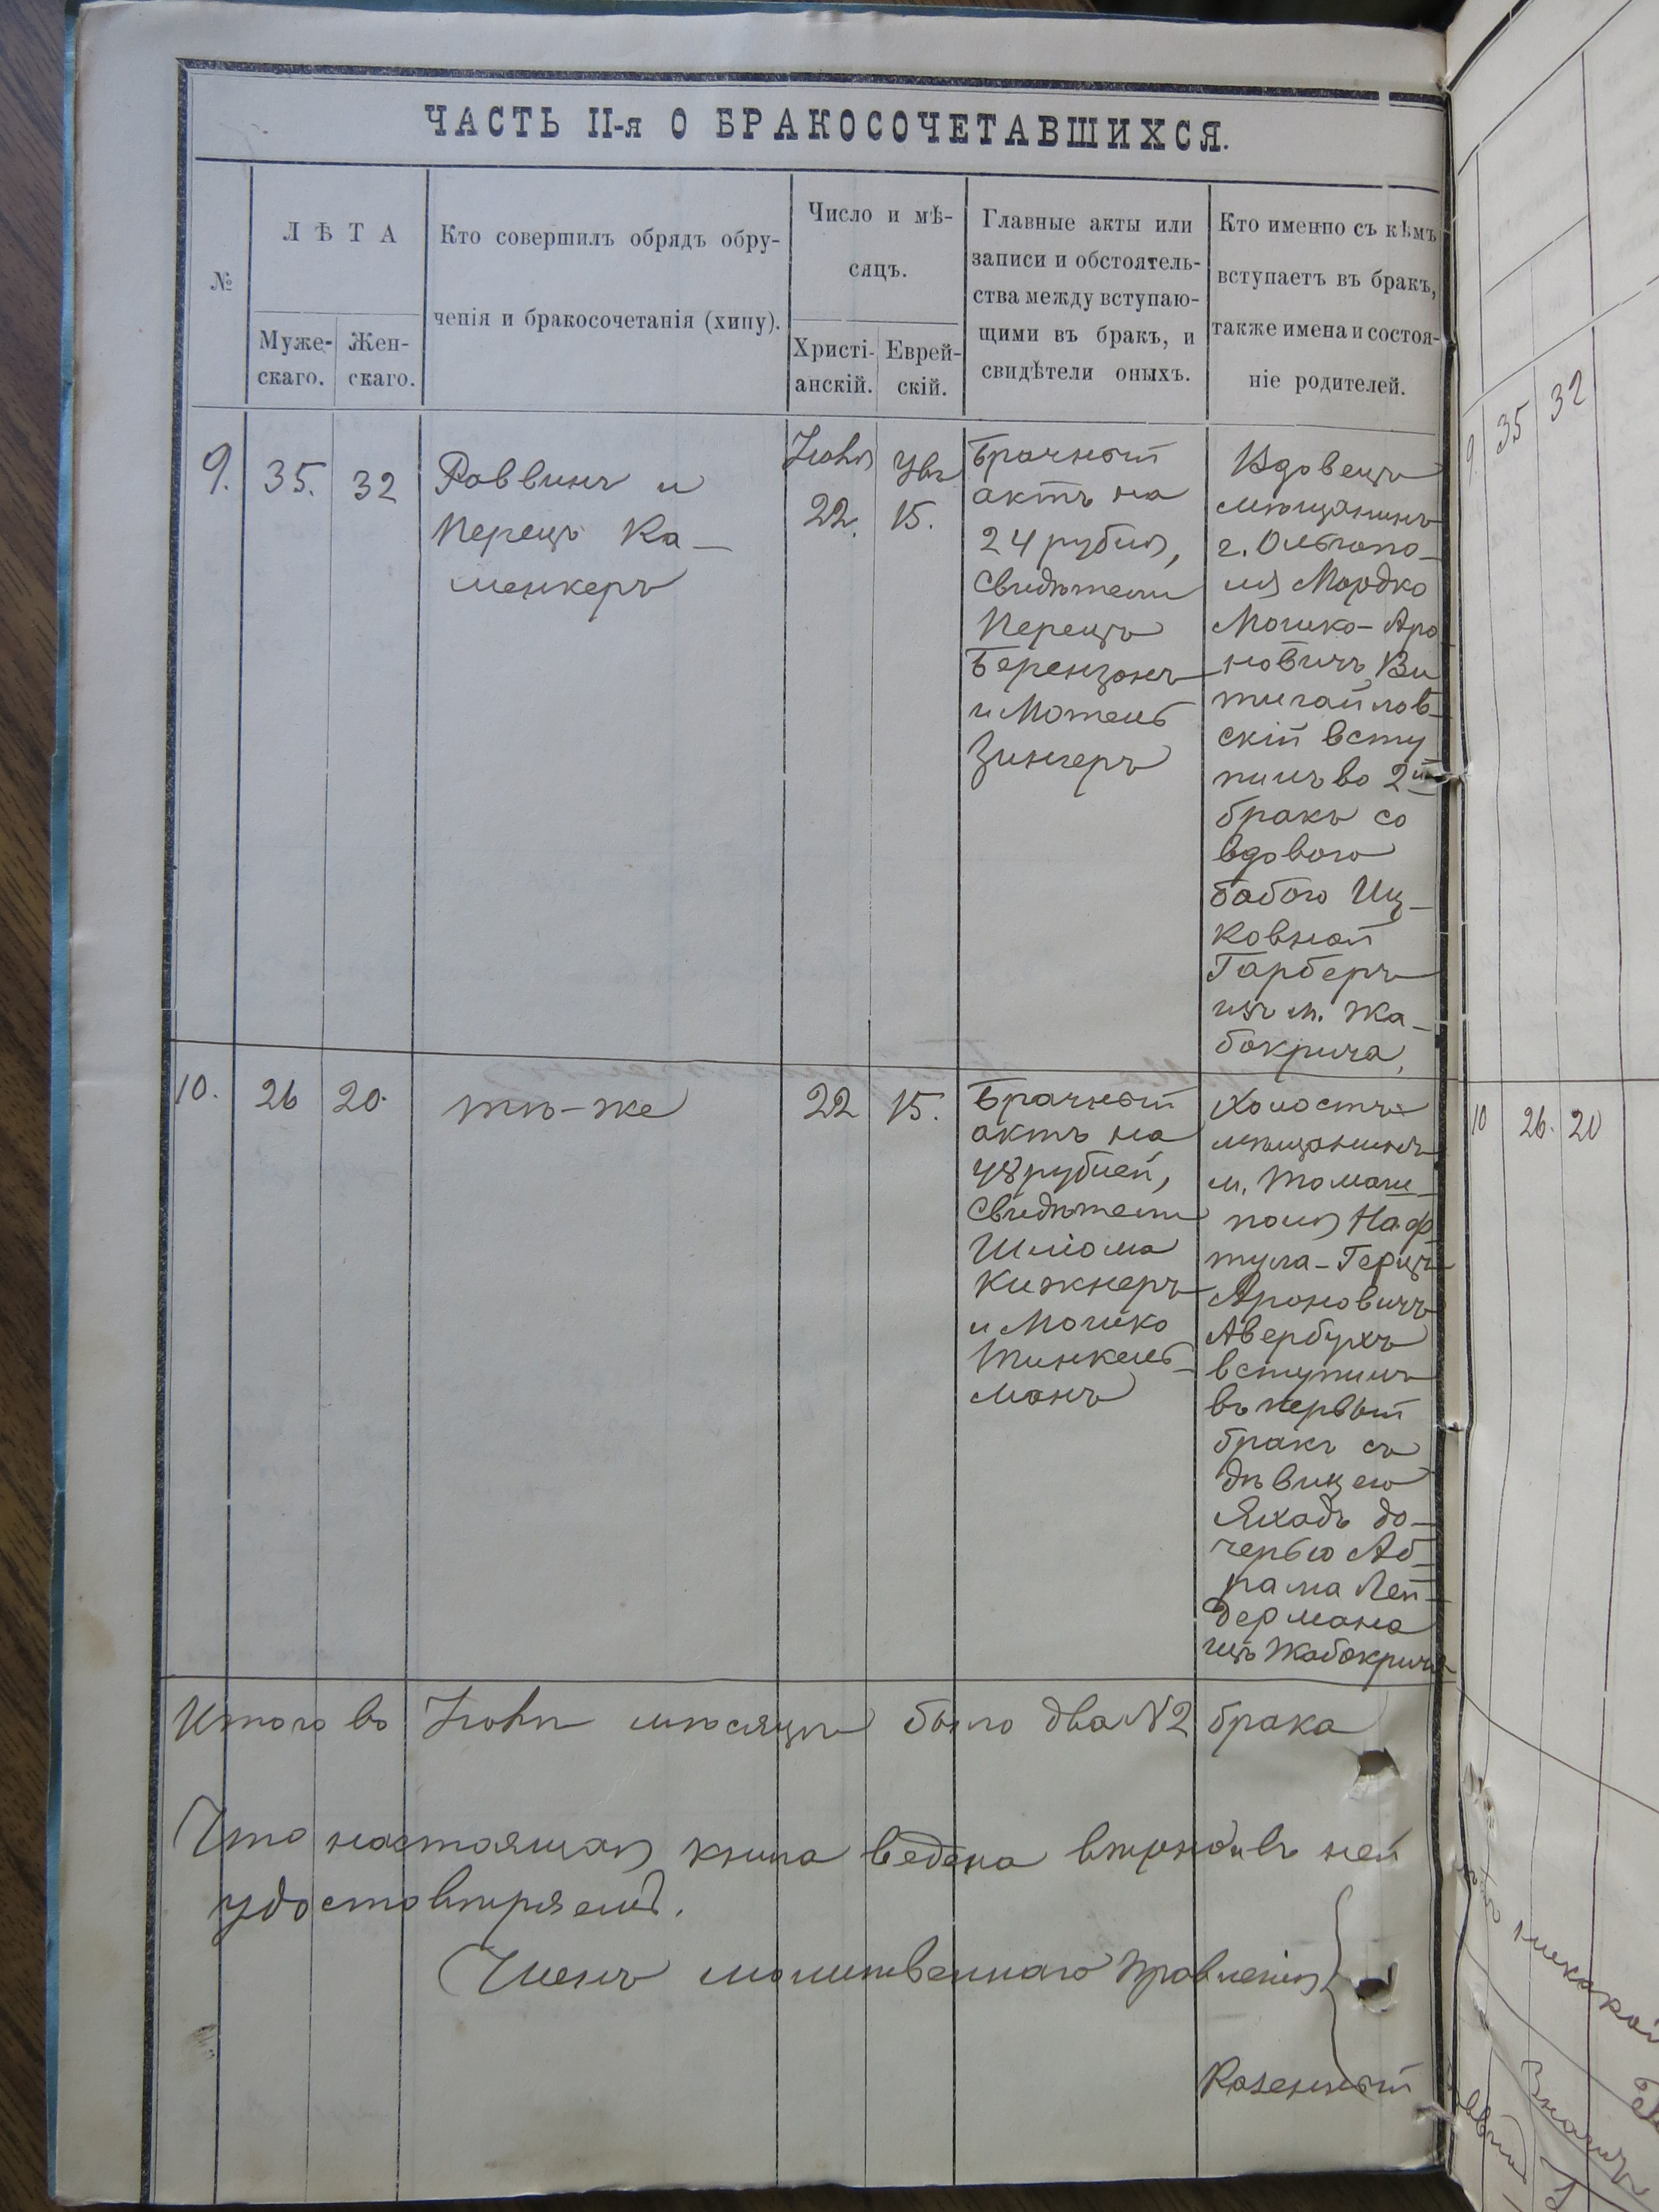 ЧАСТЬ II-я О БРАКОСОЧЕТАВШИХСЯ.
№
ЛѢТА
Муже-
скаго.
Жен-
скаго.
Кто совершилъ обрядъ обру-
ченія и бракосочетанія (хипу).
Число и мѣ-
сяцъ.
Христі-
анскій.
Еврей-
скій.
Главные акты или
записи и обстоятель-
ства между вступаю-
щими въ бракъ, и
свидѣтели оныхъ.
Кто именно съ кѣмъ
вступаетъ въ бракъ,
также имена и состоя-
ніе родителей.
9.
35.
32
Раввинъ и
Перецъ Ка-
менкеръ
Іюня
22.
15.
Брачный
актъ на
24 рубля,
свидѣтели
Перецъ
Берензонъ
и Мотель
Зингеръ
Вдовецъ
мѣщанинъ
г. Ольгопо-
ля Мордко
Мошко-Аро
новичъ Ви
тигайлов-
скій всту
пилъ во 2й
бракъ со
вдовою
Бабою Иц-
ковной
Гарберъ
изъ м. Жа-
бокрича,
10.
26
20.
тѣ-же
22
15.
Брачный
актъ на
48 рублей,
свидѣтели
Шліома
Кижнеръ
и Мошко
Тинкель-
манъ
Холостъ
мѣщанинъ
м. Томаш-
поля Наф
тула-Герцъ
Ароновичъ
Авербухъ
вступилъ
въ первый
бракъ съ
дѣвицею
дο-
черью Аб-
рама Лей-
дермана
изъ Жабокрича
Итого въ Іюнѣ мѣсяцѣ было два №2 брака
Что настоящая книга ведена вѣрно въ ней
удостовѣряемъ.
Членъ молитвеннаго правленія
Казенный
9.
35
32
10
26.
20